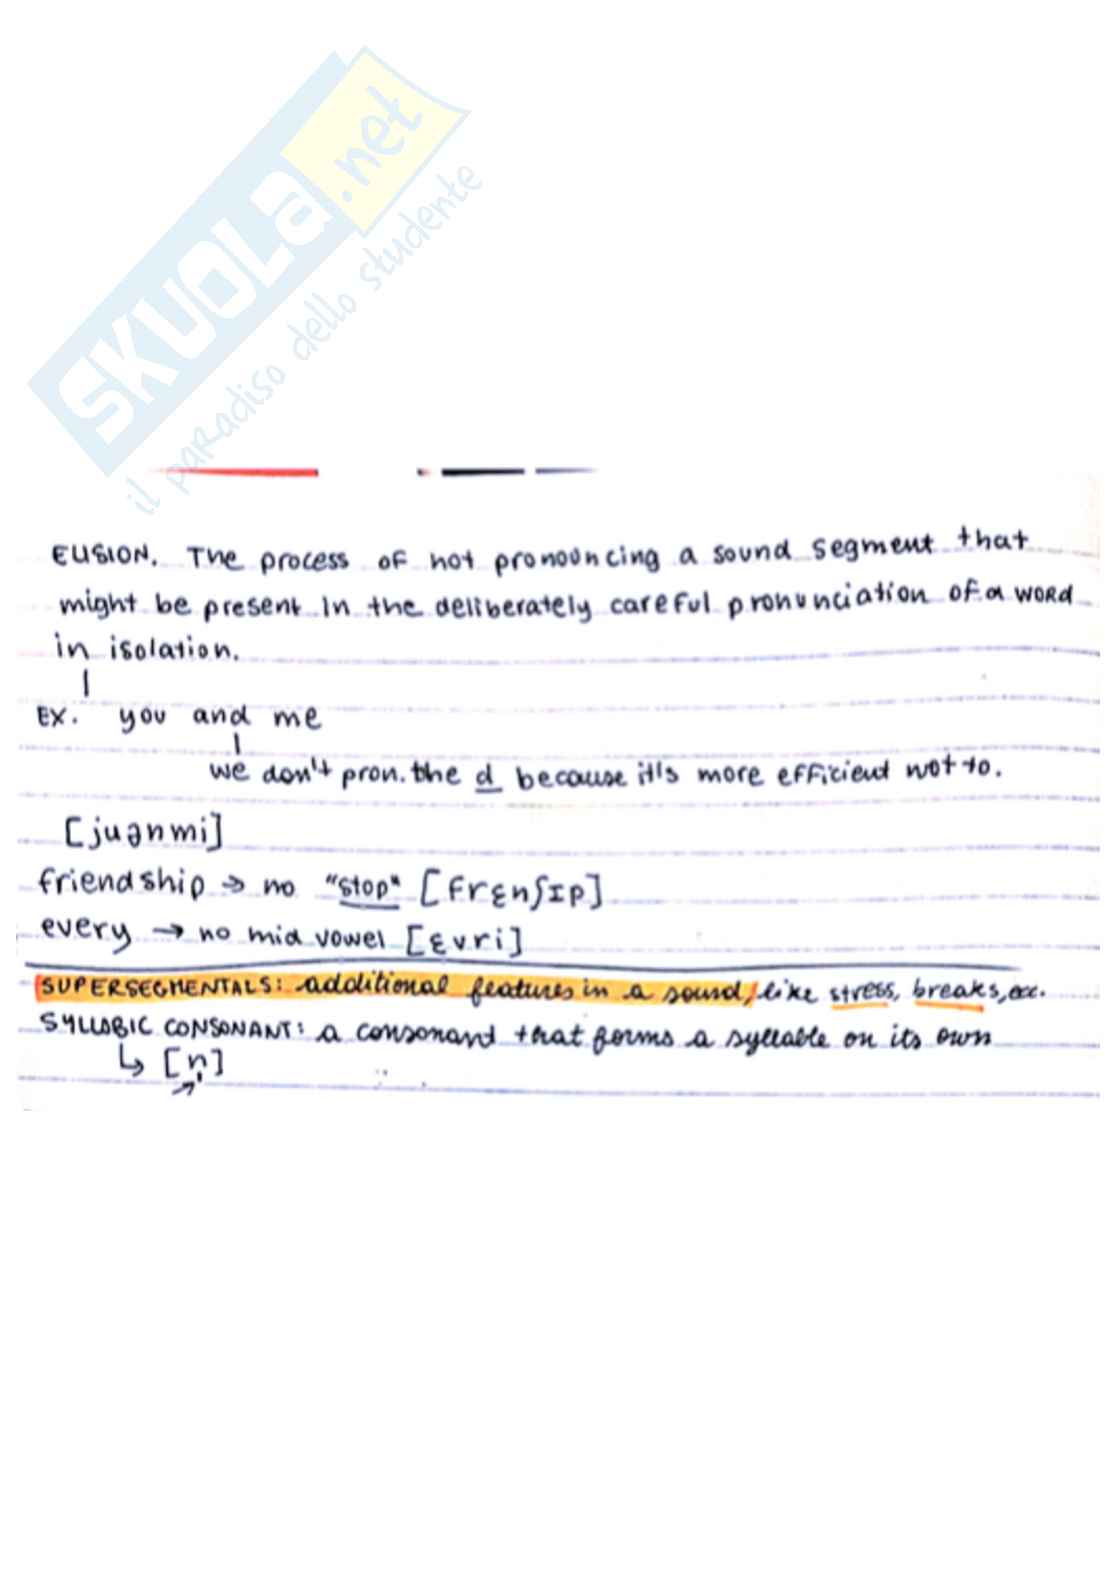 SKUOLA.net
il paradiso dello studente
ELISION. The process of not pronouncing a sound segment that
might be present in the deliberately careful pronunciation of a word
in isolation.
EX. you and me
we don't pron. the d because it's more efficient not to.
[juənmi]
friendship → no "stop" [frɛnʃɪp]
every → no mid vowel [ɛvri]
SUPERSEGMENTALS: additional features in a sound, like stress, breaks, ecc.
SYLLABIC CONSONANT: a consonant that forms a syllable on its own
↳ [n̩]